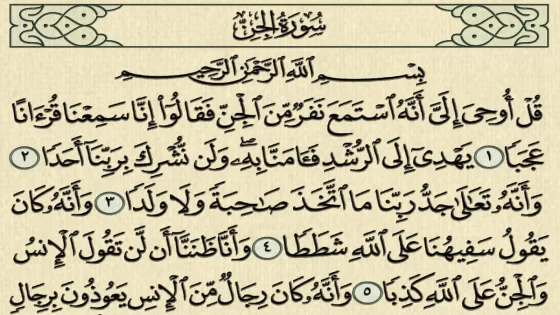 سُورَةُ الجِنِّ
بِسْمِ ٱللَّهِ ٱلرَّحْمَٰنِ ٱلرَّحِيمِ
قُلْ أُوحِىَ إِلَىَّ أَنَّهُ ٱسْتَمَعَ نَفَرٌ مِّنَ ٱلْجِنِّ فَقَالُوٓا۟ إِنَّا سَمِعْنَا قُرْءَانًا
عَجَبًا ١ يَهْدِىٓ إِلَى ٱلرُّشْدِ فَـَٔامَنَّا بِهِۦ ۖ وَلَن نُّشْرِكَ بِرَبِّنَآ أَحَدًا ٢
وَأَنَّهُۥ تَعَٰلَىٰ جَدُّ رَبِّنَا مَا ٱتَّخَذَ صَٰحِبَةً وَلَا وَلَدًا ٣ وَأَنَّهُۥ كَانَ
يَقُولُ سَفِيهُنَا عَلَى ٱللَّهِ شَطَطًا ٤ وَأَنَّا ظَنَنَّآ أَن لَّن تَقُولَ ٱلْإِنسُ
وَٱلْجِنُّ عَلَى ٱللَّهِ كَذِبًا ٥ وَأَنَّهُۥ كَانَ رِجَالٌ مِّنَ ٱلْإِنسِ يَعُوذُونَ بِرِجَالٍ